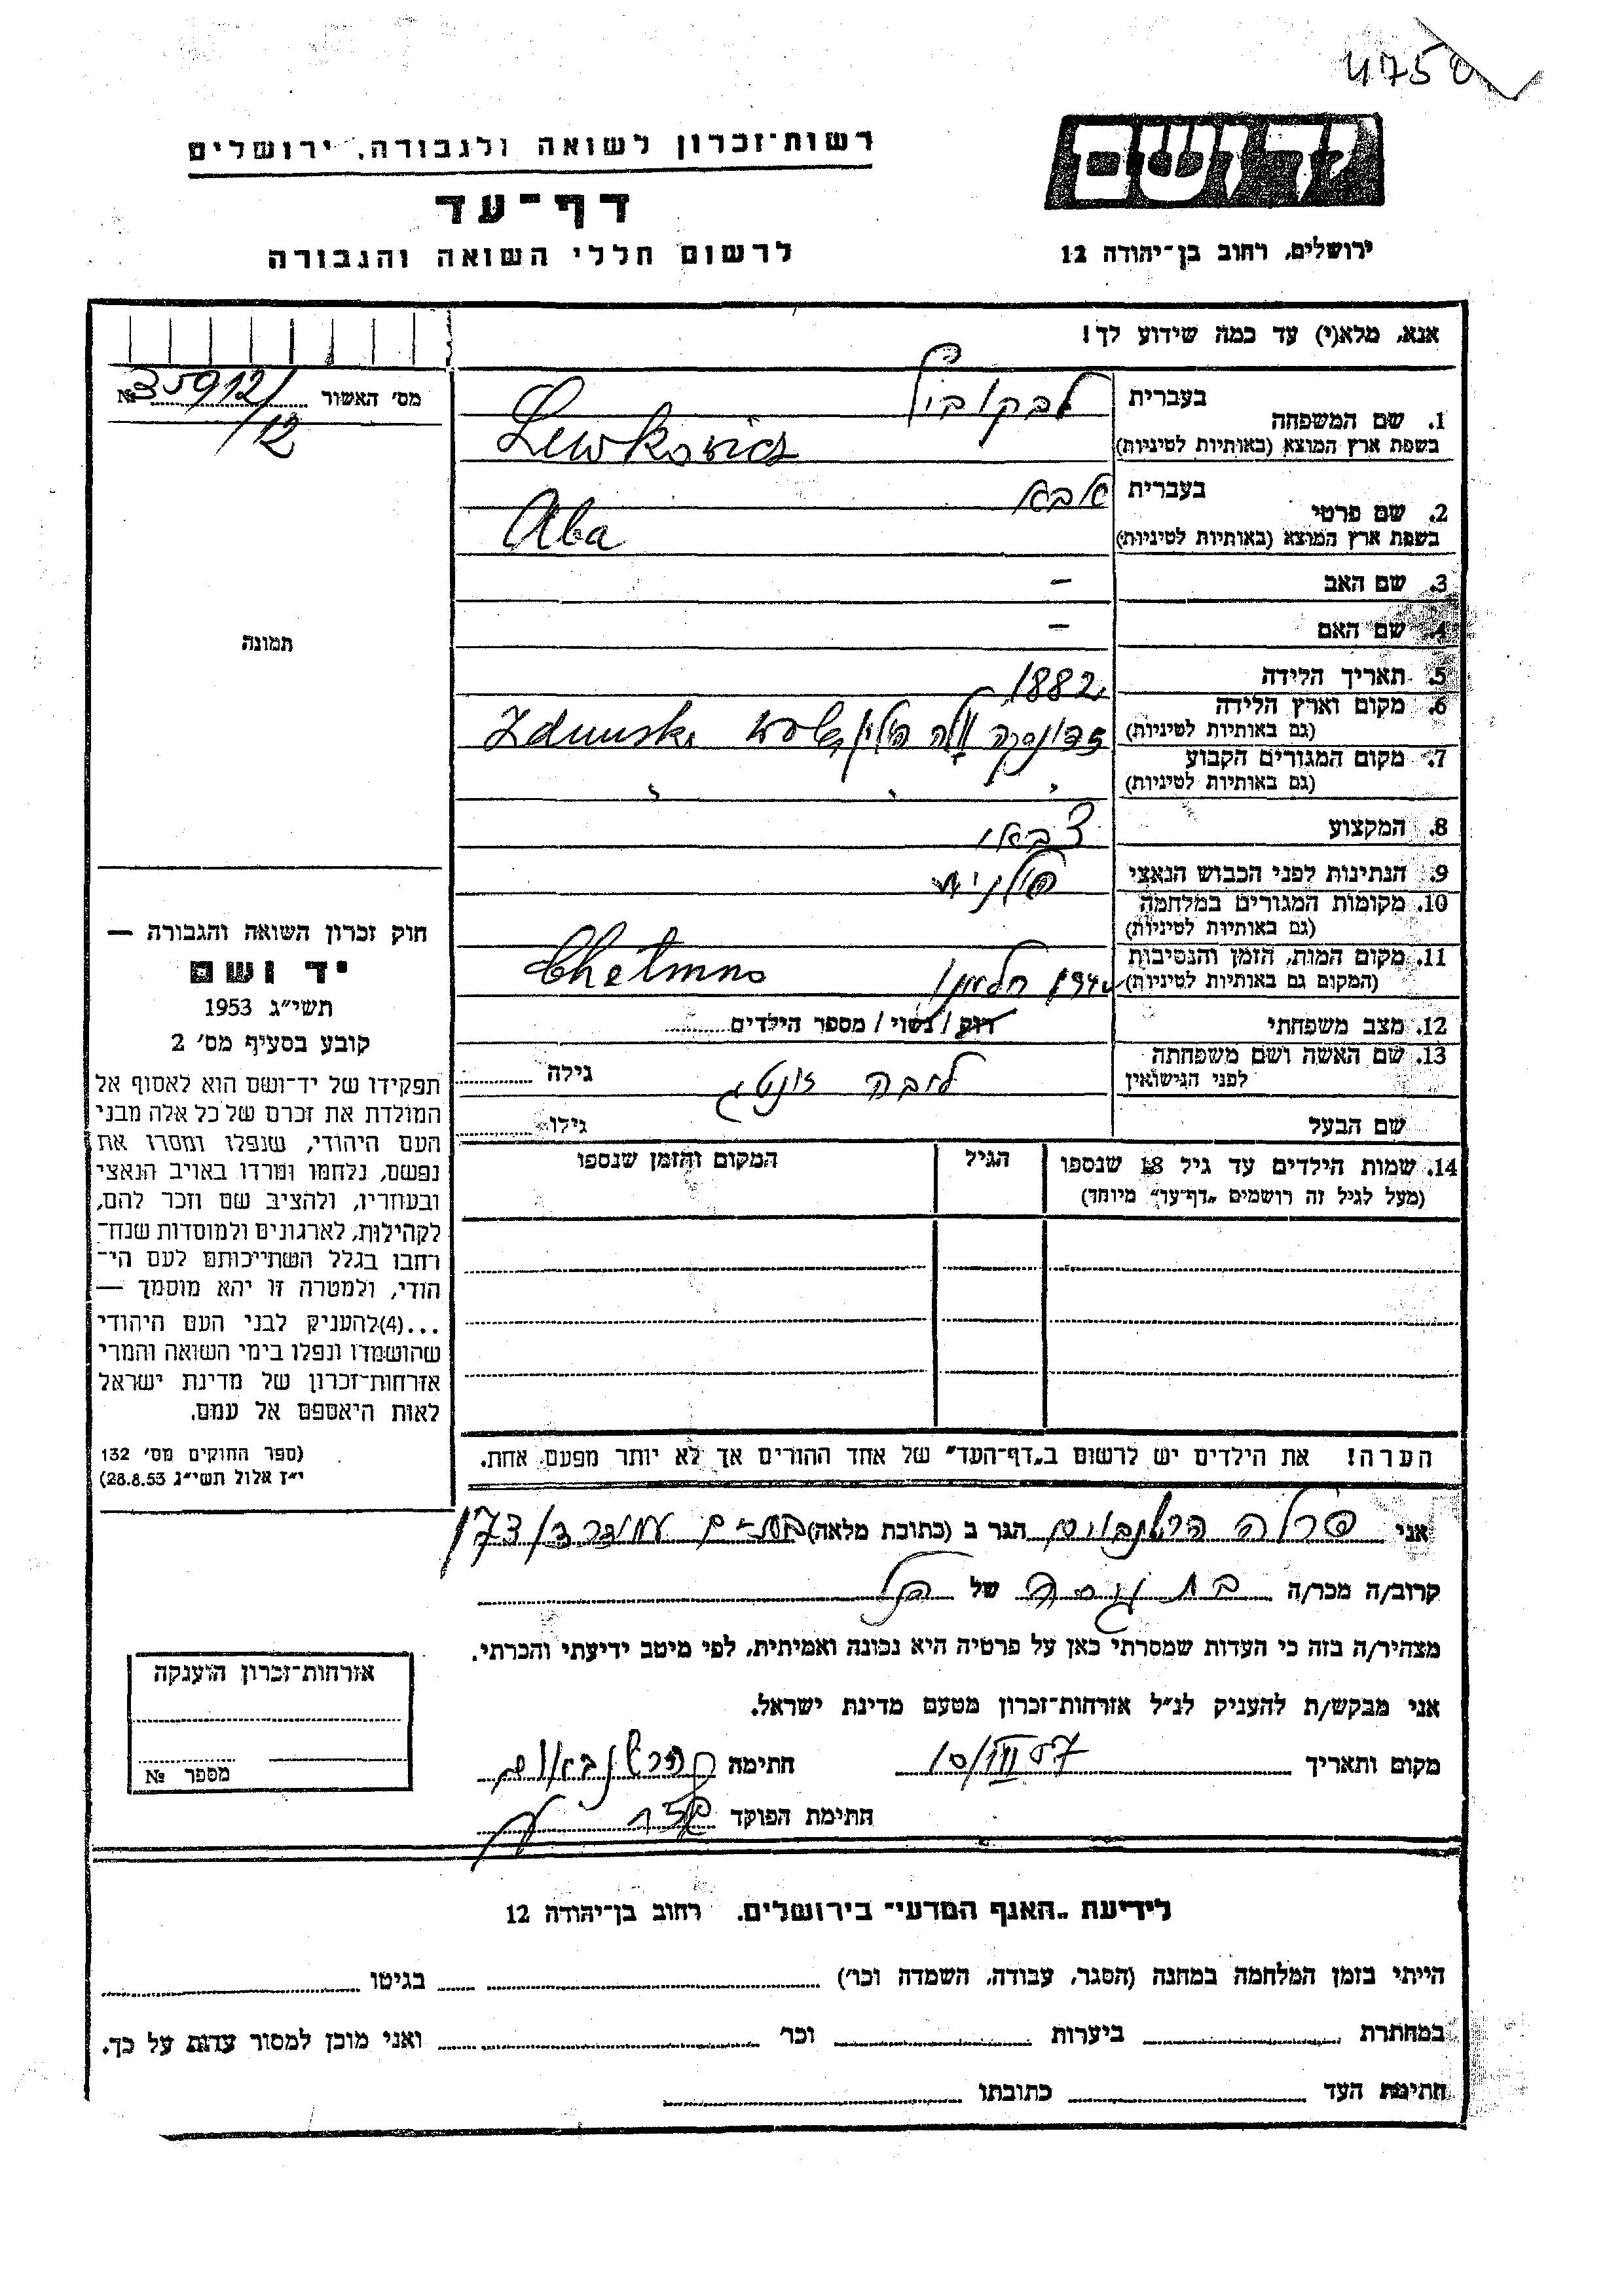 4750
יד ושם
ירושלים, רחוב בן־יהודה 12
רשות־זכרון לשואה ולגבורה, ירושלים
דף־עד
לרשום חללי השואה והגבורה
אנא, מלא(י) עד כמה שידוע לך!
מס' האשור № 35912/12
תמונה
1. שם המשפחה
בעברית לבקוביץ
בשפת ארץ המוצא (באותיות לטיניות) Lewkovics
2. שם פרטי
בעברית אבא
בשפת ארץ המוצא (באותיות לטיניות) Aba
3. שם האב —
4. שם האם —
5. תאריך הלידה 1882
6. מקום וארץ הלידה
(גם באותיות לטיניות) זדונסקה וולה פולין Zdunska
7. מקום המגורים הקבוע
(גם באותיות לטיניות) " " "
8. המקצוע צבאי
9. הנתינות לפני הכבוש הנאצי פולנית
10. מקומות המגורים במלחמה
(גם באותיות לטיניות)
11. מקום המות, הזמן והנסיבות
(המקום גם באותיות לטיניות) חלמנו Chelmno
12. מצב משפחתי רוק / נשוי / מספר הילדים
13. שם האשה ושם משפחתה
לפני הנישואין לובה זונטג גילה
שם הבעל גילו
14. שמות הילדים עד גיל 18 שנספו הגיל המקום והזמן שנספו
(מעל לגיל זה רושמים „דף־עד" מיוחד)
הערה! את הילדים יש לרשום ב„דף־העד" של אחד ההורים אך לא יותר מפעם אחת.
חוק זכרון השואה והגבורה —
יד ושם
תשי״ג 1953
קובע בסעיף מס' 2
תפקידו של יד־ושם הוא לאסוף אל
המולדת את זכרם של כל אלה מבני
העם היהודי, שנפלו ומסרו את
נפשם, נלחמו ומרדו באויב הנאצי
ובעוזריו, ולהציב שם וזכר להם,
לקהילות, לארגונים ולמוסדות שנח־
רחבו בגלל השתייכותם לעם הי־
הודי, ולמטרה זו יהא מוסמך —
...(4)להעניק לבני העם היהודי
שהושמדו ונפלו בימי השואה והמרי
אזרחות־זכרון של מדינת ישראל
לאות היאספם אל עמם.
(ספר החוקים מס' 132
י״ז אלול תשי״ג 28.8.53)
אני פרלה הרשנבוים הגר ב (כתובת מלאה) בת-ים עמידר 173/3
קרוב/ה מכר/ה בת גיסה של הנ״ל
מצהיר/ה בזה כי העדות שמסרתי כאן על פרטיה היא נכונה ואמיתית, לפי מיטב ידיעתי והכרתי.
אני מבקש/ת להעניק לנ״ל אזרחות־זכרון מטעם מדינת ישראל.
מקום ותאריך 10/VII 57 חתימה הרשנבאום
חתימת הפוקד
אזרחות־זכרון הוענקה
מספר №
לידיעת „האגף המדעי" בירושלים. רחוב בן־יהודה 12
הייתי בזמן המלחמה במחנה (הסגר, עבודה, השמדה וכו') בגיטו
במחתרת ביערות וכו' ואני מוכן למסור עדות על כך.
חתימת העד כתובתו